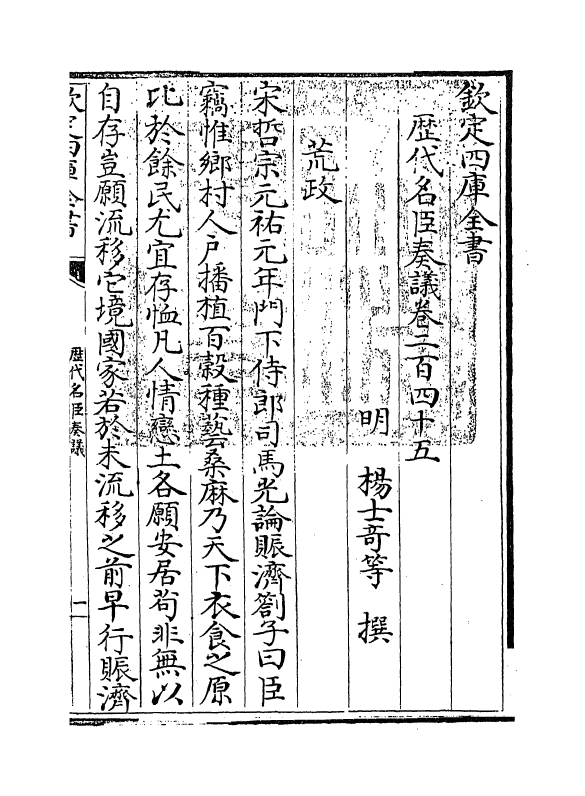 欽定四庫全書
歴代名臣奏議卷二百四十五
明　楊士竒等　撰
荒政
宋哲宗元祐元年門下侍郎司馬光論賑濟劄子曰臣
竊惟鄉村人户播植百穀種藝桑麻乃天下衣食之原
比於餘民尤宜存恤凡人情戀土各願安居茍非無以
自存豈願流移它境國家若於未流移之前早行賑濟
欽定四庫全書
歴代名臣奏議